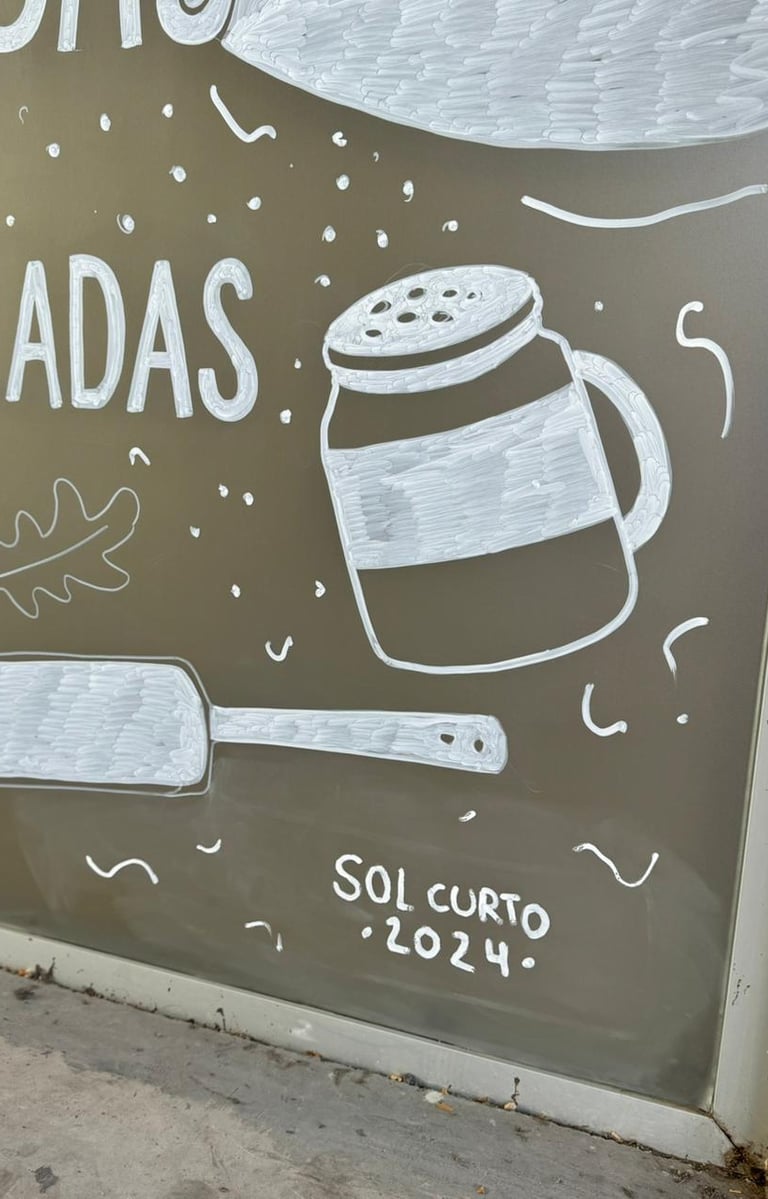 ADAS
SOL CURTO
·2024·